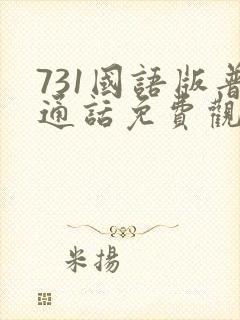 731國語版普
通話免費觀
米揚